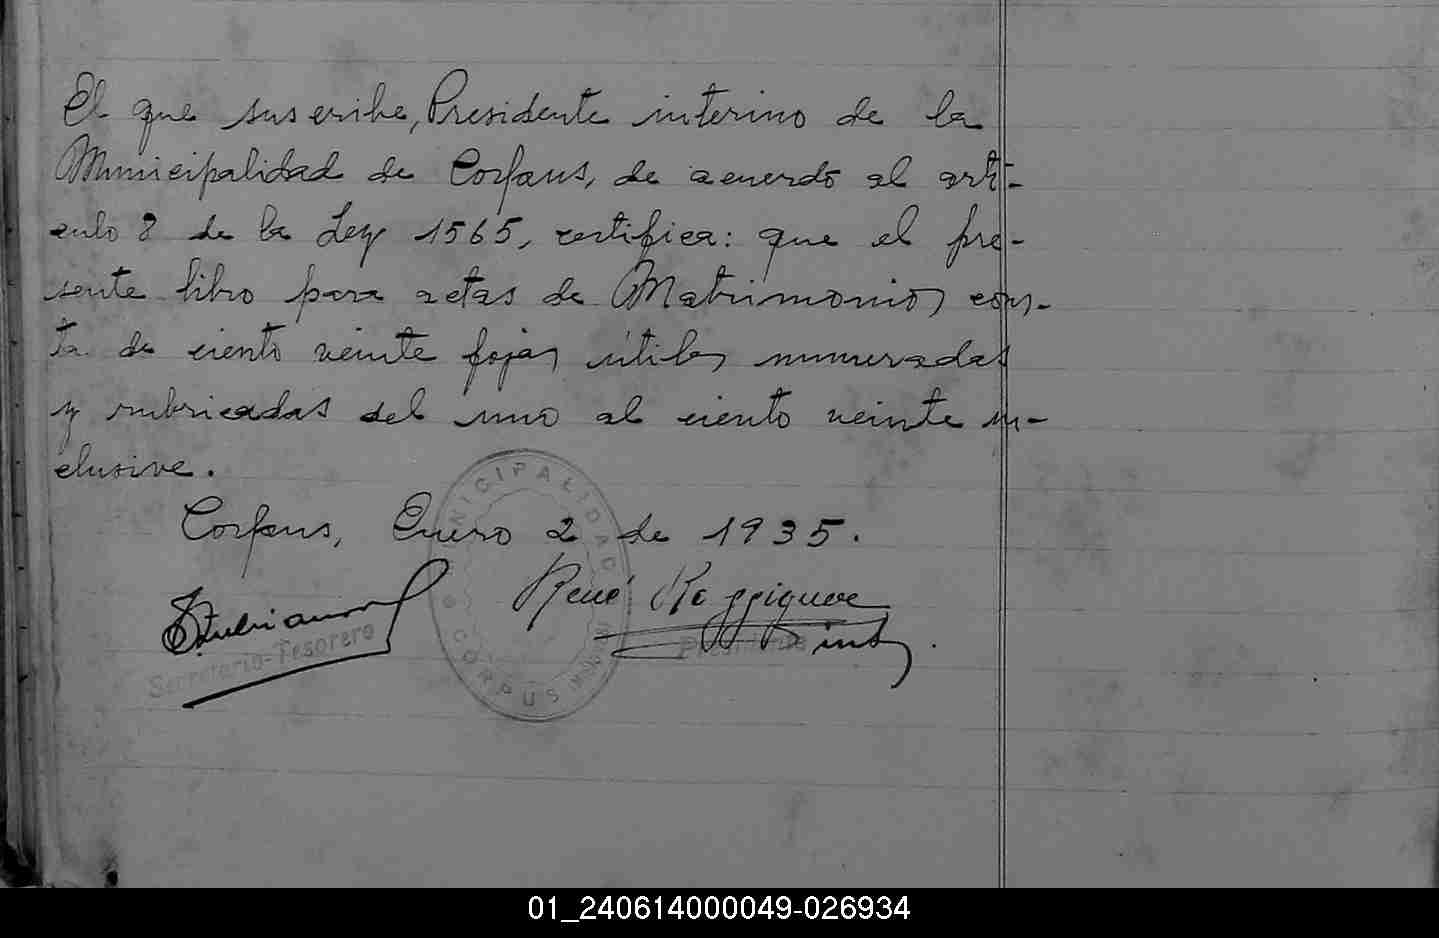 El que suscribe, Presidente interino de la
Municipalidad de Corpus, de acuerdo al artí-
culo 8 de la Ley 1565, certifica: que el pre-
sente libro para actas de Matrimonios cons-
ta de ciento veinte fojas útiles numeradas
y rubricadas del uno al ciento veinte in-
clusive.
Corpus, Enero 2 de 1935.
MUNICIPALIDAD
CORPUS
René
Secretario-Tesorero
Presidente
int.
01_240614000049-026934